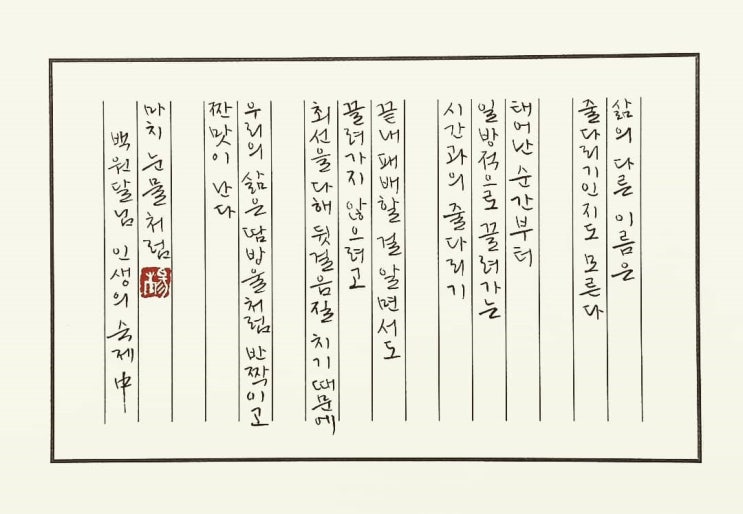 삶의 다른 이름은
줄다리기인지도 모른다
태어난 순간부터
일방적으로 끌려가는
시간과의 줄다리기
끝내 패배할 걸 알면서도
끌려가지 않으려고
최선을 다해 뒷걸음질 치기 때문에
우리의 삶은 땀방울처럼 반짝이고
짠맛이 난다
마치 눈물처럼
백원달님 인생의 숙제 中